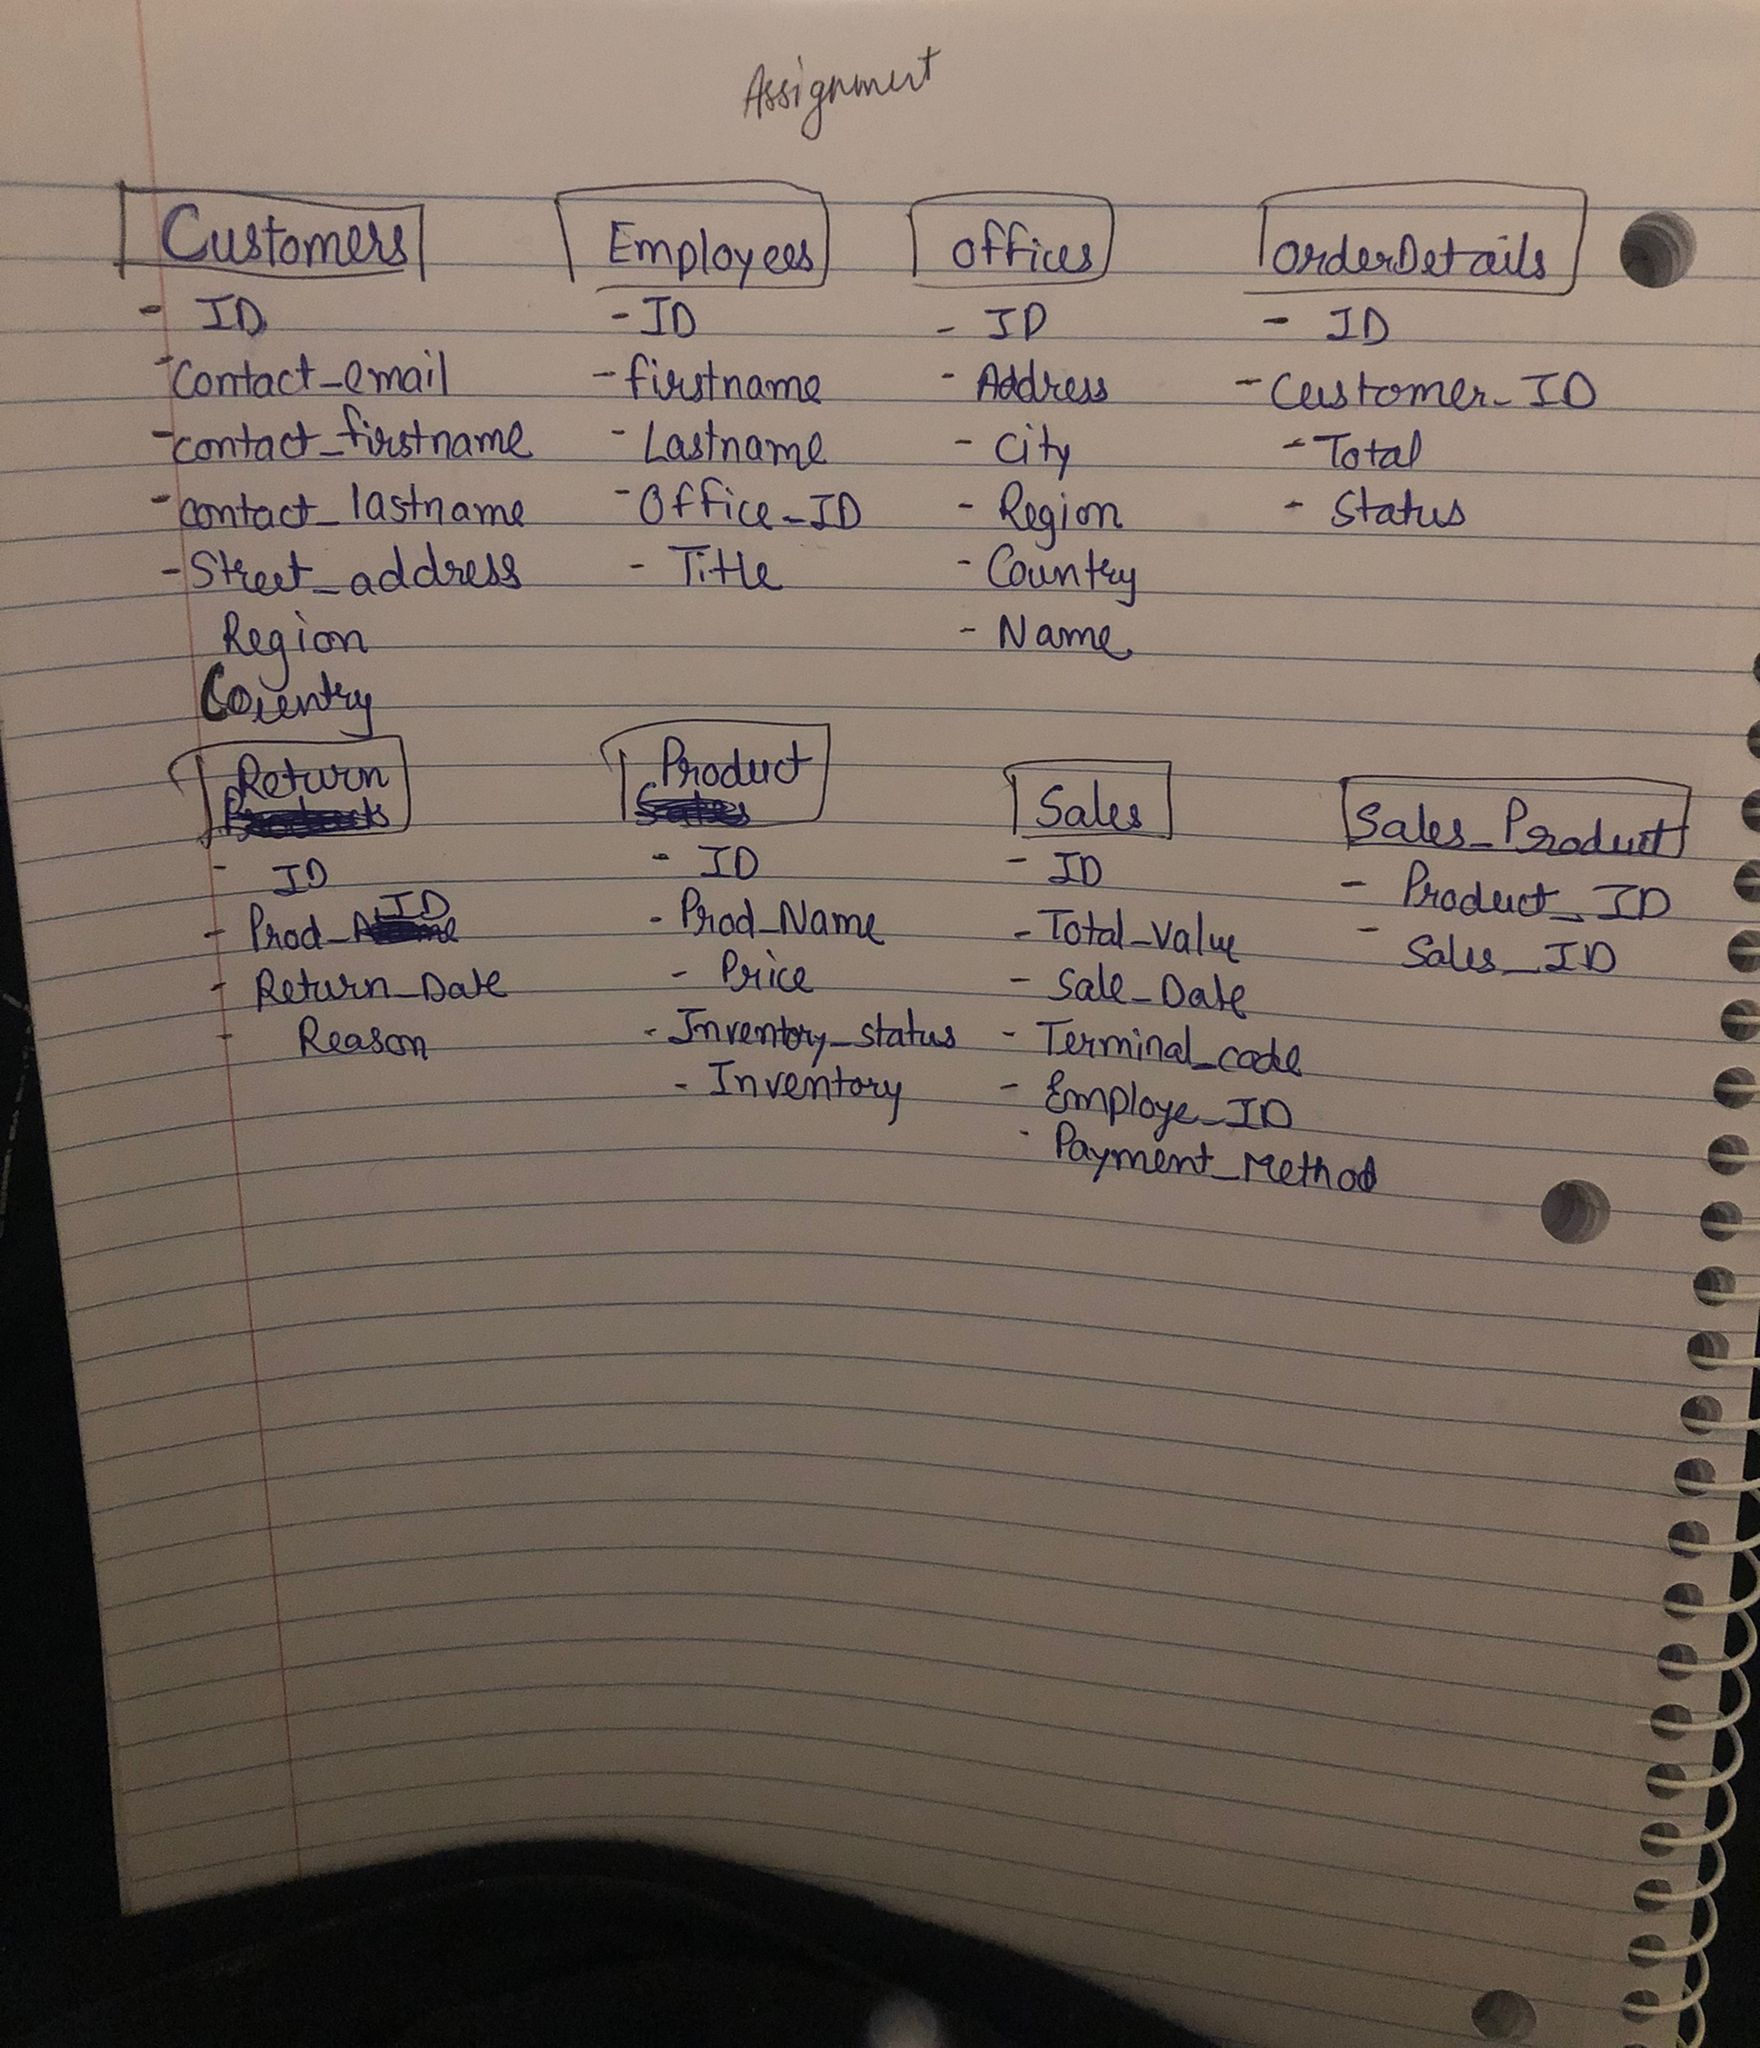 Assignment
Customers
- ID
- Contact_email
- contact_firstname
- contact_lastname
- Street_address
Region
Country
Employees
- ID
- firstname
- Lastname
- Office_ID
- Title
Offices
- ID
- Address
- City
- Region
- Country
- Name
OrderDetails
- ID
- Customer_ID
- Total
- Status
Return
- ID
- Prod_ID
- Return_Date
- Reason
Product
- ID
- Prod_Name
- Price
- Inventory_status
- Inventory
Sales
- ID
- Total_Value
- Sale_Date
- Terminal_code
- Employe_ID
- Payment_Method
Sales_Product
- Product_ID
- Sales_ID